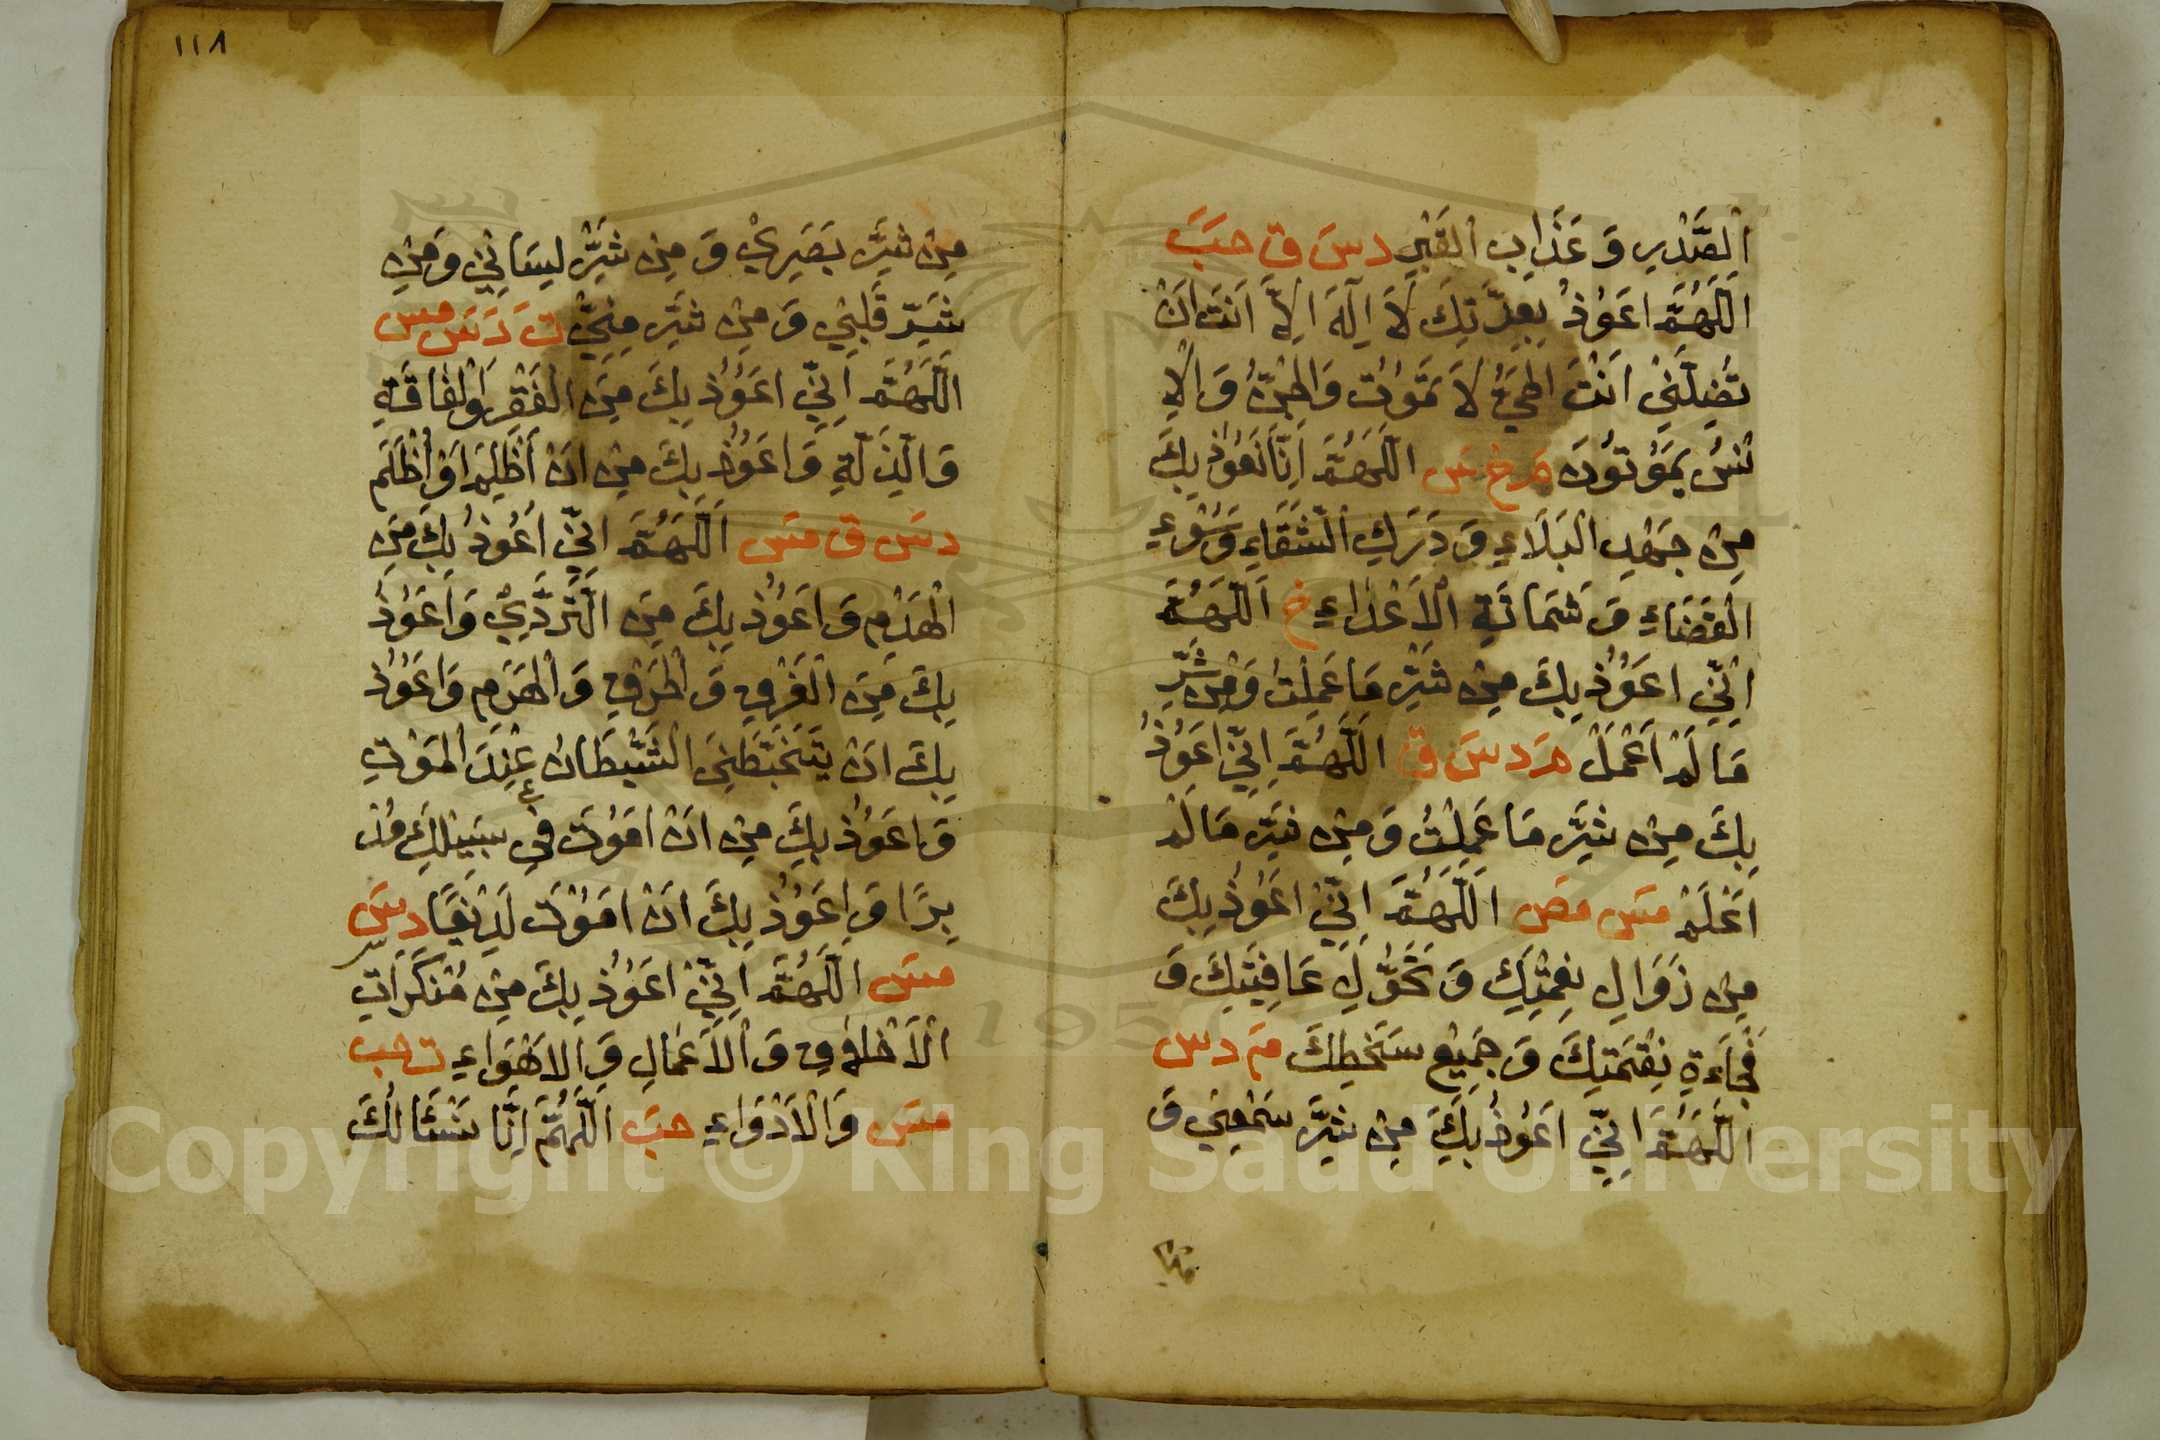 اَلصَّدْرِ وَعَذَابِ الْقَبْرِ دس ق حب
اَللّٰهُمَّ اَعُوْذُ بِعِزَّتِكَ لَا اِلٰهَ اِلَّا اَنْتَ اَنْ
تُضِلَّنِيْ اَنْتَ الْحَيُّ لَا تَمُوْتُ وَالْجِنُّ وَالْاِ
نْسُ يَمُوْتُوْنَ م خ س اَللّٰهُمَّ اِنَّا نَعُوْذُ بِكَ
مِنْ جَهْدِ الْبَلَاءِ وَدَرَكِ الشَّقَاءِ وَسُوْءِ
الْقَضَاءِ وَشَمَاتَةِ الْاَعْدَاءِ خ اَللّٰهُمَّ
اِنِّيْ اَعُوْذُ بِكَ مِنْ شَرِّ مَا عَمِلْتُ وَمِنْ شَرِّ
مَا لَمْ اَعْمَلْ م د س ق اَللّٰهُمَّ اِنِّيْ اَعُوْذُ
بِكَ مِنْ شَرِّ مَا عَمِلْتُ وَمِنْ شَرِّ مَا لَمْ
اَعْلَمْ مس مص اَللّٰهُمَّ اِنِّيْ اَعُوْذُ بِكَ
مِنْ زَوَالِ نِعْمَتِكَ وَتَحَوُّلِ عَافِيَتِكَ وَ
فُجَاءَةِ نِقْمَتِكَ وَجَمِيْعِ سَخَطِكَ م دس
اَللّٰهُمَّ اِنِّيْ اَعُوْذُ بِكَ مِنْ شَرِّ سَمْعِيْ وَ
١١٨
مِنْ شَرِّ بَصَرِيْ وَمِنْ شَرِّ لِسَانِيْ وَمِنْ
شَرِّ قَلْبِيْ وَمِنْ شَرِّ مَنِيِّيْ ت د س مس
اَللّٰهُمَّ اِنِّيْ اَعُوْذُ بِكَ مِنَ الْفَقْرِ وَالْفَاقَةِ
وَالذِّلَّةِ وَاَعُوْذُ بِكَ مِنْ اَنْ اَظْلِمَ اَوْ اُظْلَمَ
دس ق مس اَللّٰهُمَّ اِنِّيْ اَعُوْذُ بِكَ مِنَ
الْهَدْمِ وَاَعُوْذُ بِكَ مِنَ التَّرَدِّيْ وَاَعُوْذُ
بِكَ مِنَ الْغَرَقِ وَالْحَرَقِ وَالْهَرَمِ وَاَعُوْذُ
بِكَ اَنْ يَتَخَبَّطَنِيَ الشَّيْطَانُ عِنْدَ الْمَوْتِ
وَاَعُوْذُ بِكَ مِنْ اَنْ اَمُوْتَ فِيْ سَبِيْلِكَ مُدْ
بِرًا وَاَعُوْذُ بِكَ اَنْ اَمُوْتَ لَدِيْغًا دس
مس اَللّٰهُمَّ اِنِّيْ اَعُوْذُ بِكَ مِنْ مُنْكَرَاتِ
الْاَخْلَاقِ وَالْاَعْمَالِ وَالْاَهْوَاءِ ت حب
مس وَالْاَدْوَاءِ حب اَللّٰهُمَّ اِنَّا نَسْئَالُكَ
Copyright © King Saud University
1957